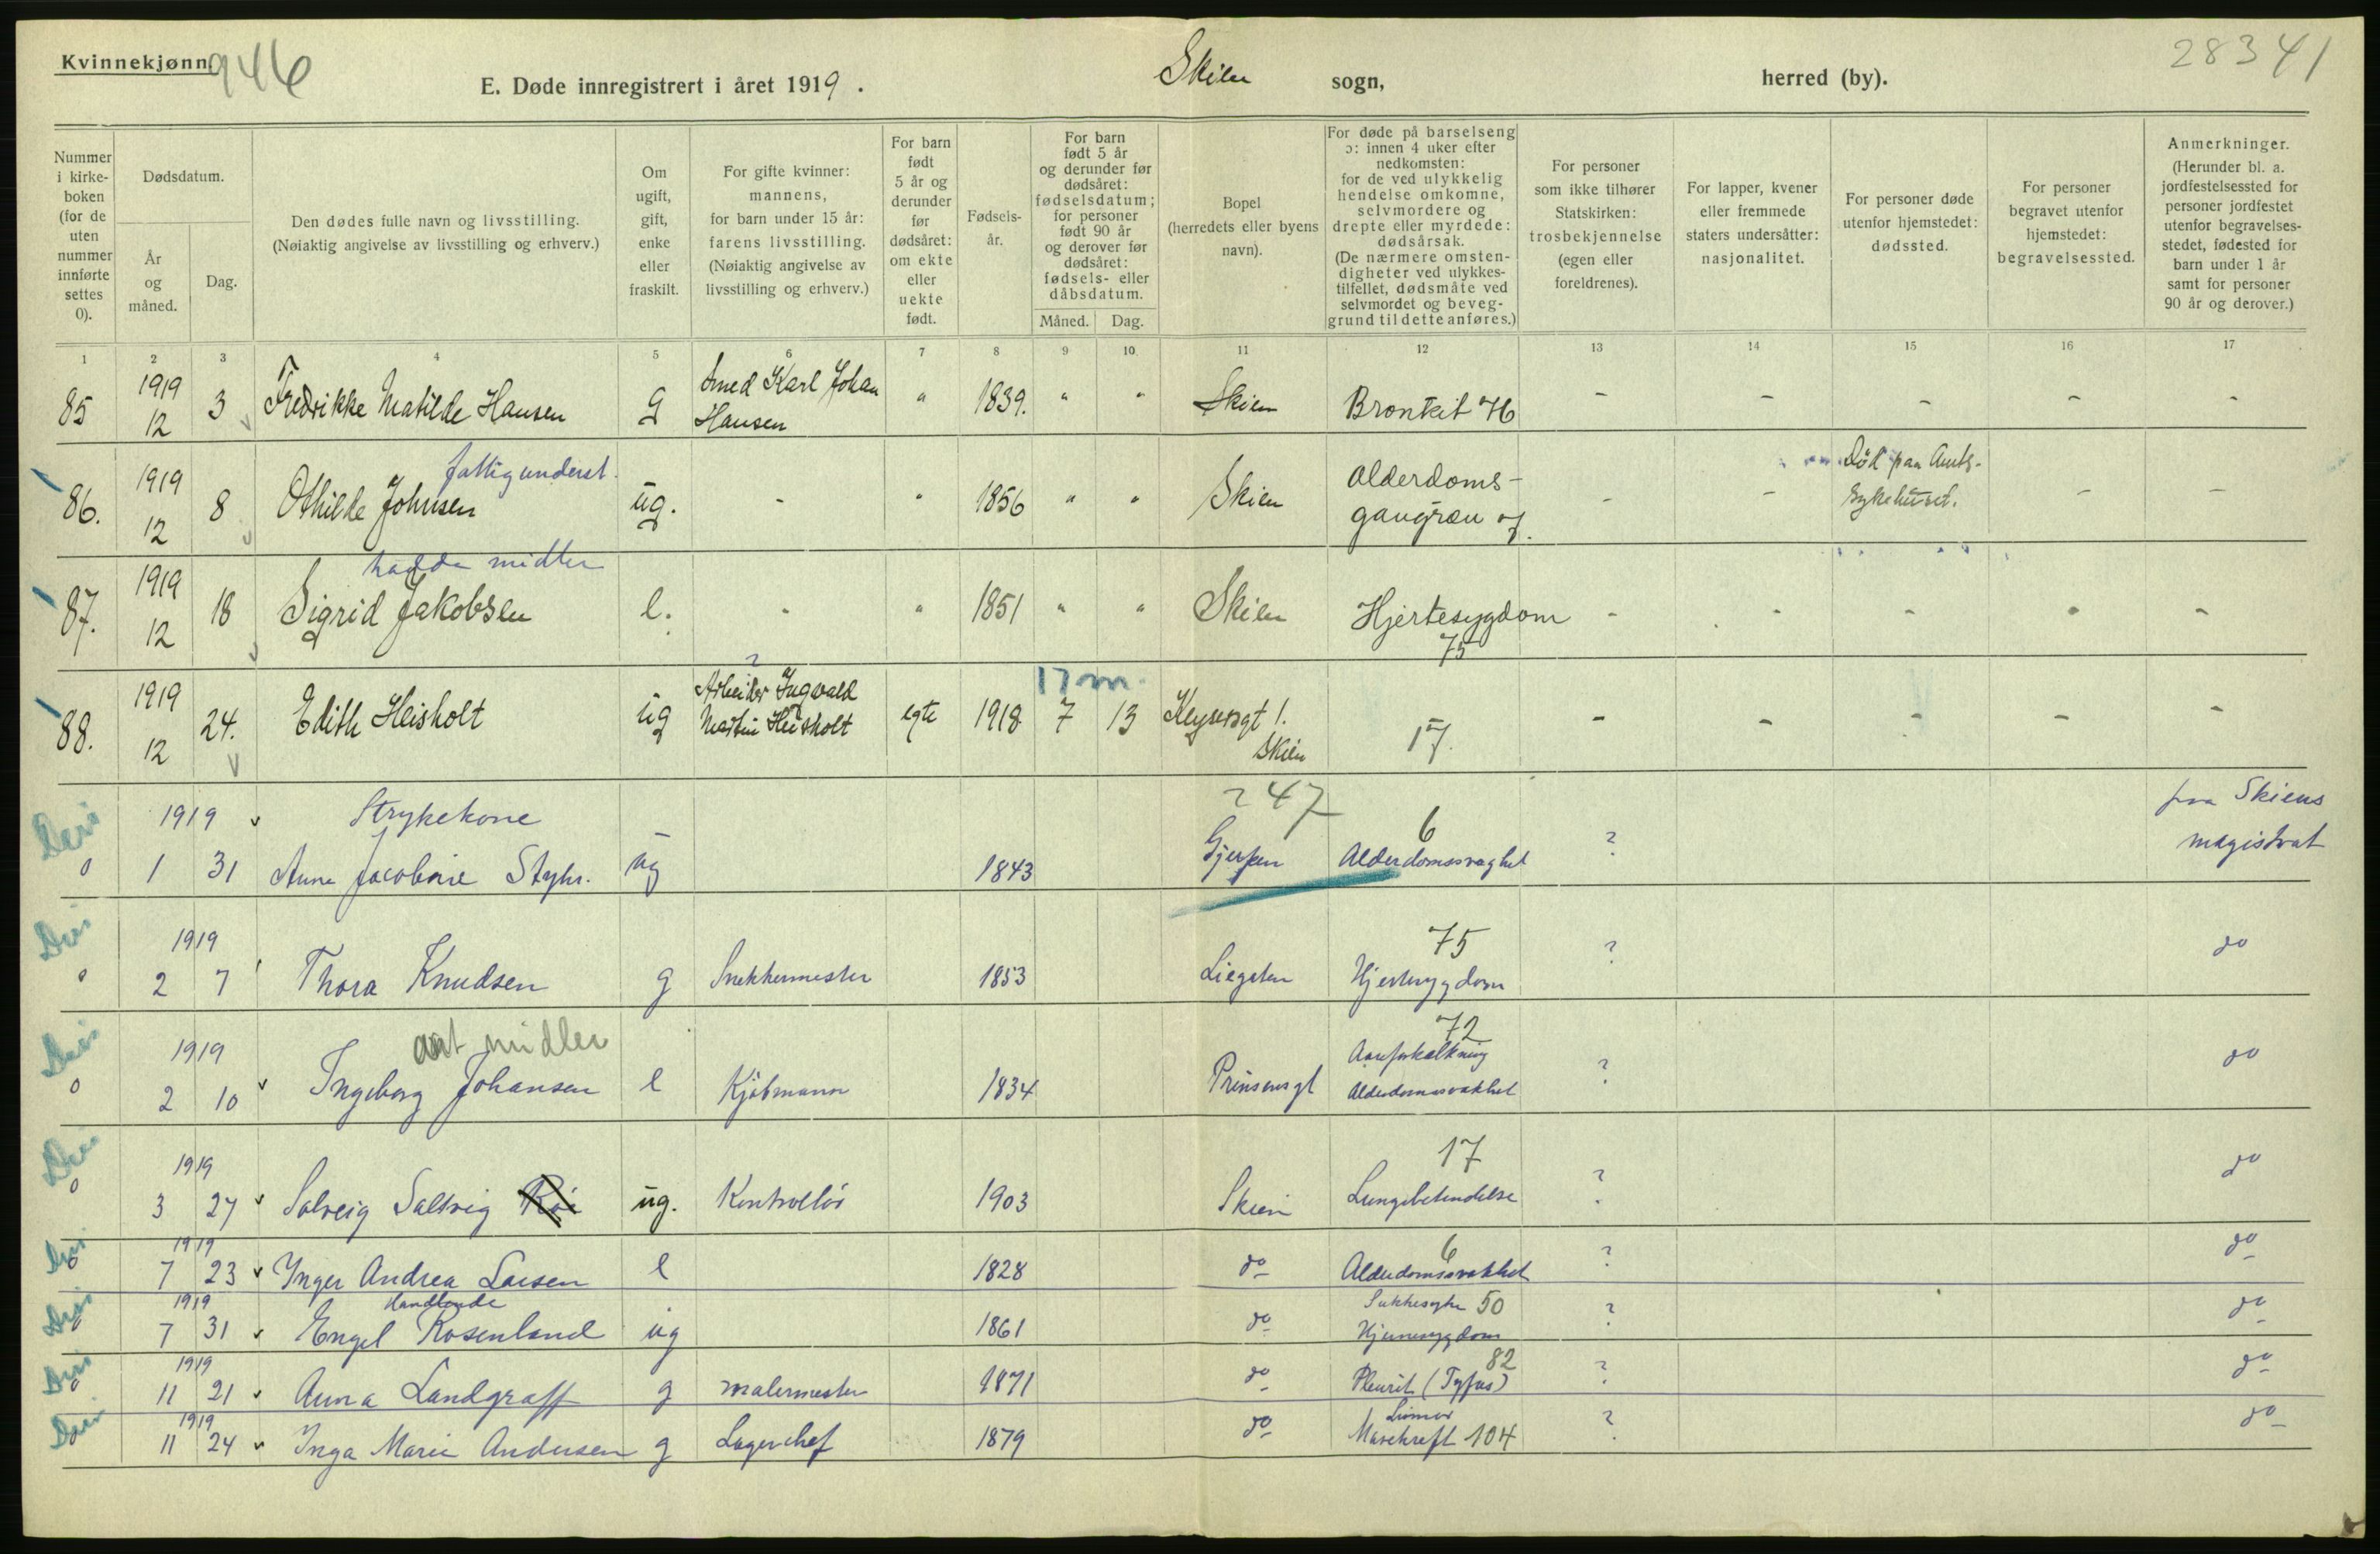 Kvinnekjønn 946
E. Døde innregistrert i året 1919. Skien sogn, herred (by). 28341
Nummer i kirkeboken (for de uten nummer innførte settes 0).
Dødsdatum.
År og måned.
Dag.
Den dødes fulle navn og livsstilling. (Nøiaktig angivelse av livsstilling og erhverv.)
Om ugift, gift, enke eller fraskilt.
For gifte kvinner: mannens, for barn under 15 år: farens livsstilling. (Nøiaktig angivelse av livsstilling og erhverv.)
For barn født 5 år og derunder før dødsåret: om ekte eller uekte født.
Fødselsår.
For barn født 5 år og derunder før dødsåret: fødselsdatum; for personer født 90 år og derover før dødsåret: fødsels- eller dåbsdatum.
Måned. Dag.
Bopel (herredets eller byens navn).
For døde på barselseng ɔ: innen 4 uker efter nedkomsten: for de ved ulykkelig hendelse omkomne, selvmordere og drepte eller myrdede: dødsårsak. (De nærmere omstendigheter ved ulykkestilfellet, dødsmåte ved selvmordet og beveggrund til dette anføres.)
For personer som ikke tilhører Statskirken: trosbekjennelse (egen eller foreldrenes).
For lapper, kvener eller fremmede staters undersåtter: nasjonalitet.
For personer døde utenfor hjemstedet: dødssted.
For personer begravet utenfor hjemstedet: begravelsessted.
Anmerkninger. (Herunder bl. a. jordfestelsessted for personer jordfestet utenfor begravelsesstedet, fødested for barn under 1 år samt for personer 90 år og derover.)
1 2 3 4 5 6 7 8 9 10 11 12 13 14 15 16 17
85 1919 12 3 Fredrikke Matilde Hansen g Smed Karl Johan Hansen " 1839. " " Skien Bronkit 76 - - - - -
fattigunderst.
86. 1919 12 8 Othilde Johnsen ug. - " 1856 " " Skien Alderdoms-gangræn 7. - - Död paa Amts-sykehuset. - -
hadde midler
87. 1919 12 18 Sigrid Jakobsen e. " " 1851 " " Skien Hjertesygdom 75 - - - - -
17 m.
88. 1919 12 24. Edith Heisholt ug Arbeider Ingvald Martin Heisholt egte 1918 7 13 Keysersgt 1. Skien 17. - - - - -
0 1919 1 31 Strykekone Anna Jacobine Styhr. ug 1843 247 Gjerpen 6 Alderdomssvaghet ? fra Skiens magistrat
0 1919 2 7 Thora Knudsen g Snekkermester 1853 Liegaten 75 Hjertesygdom ? do
art midler
0 1919 2 10 Ingeborg Johansen e Kjöbmann 1834 Prinsensgt 72 Aareforkalkning Alderdomssvakhet ? do
0 1919 3 27 Solveig Saltvig ug. Kontrollör 1903 Skien 17 Lungebetendelse ? do
0 1919 7 23 Inger Andrea Larsen e 1828 do 6 Alderdomssvakhet ? do
0 1919 7 31 Handlende Engel Rosenlund ug 1861 do Sukkesyke 50 ? do
0 1919 11 21 Anna Landgraff g malermester 1871 do 82 Pleurit (Tyfus) ? do
1919 11 24 Inga Marie Andersen g Lagerchef 1879 do Mavekreft 104 ? do